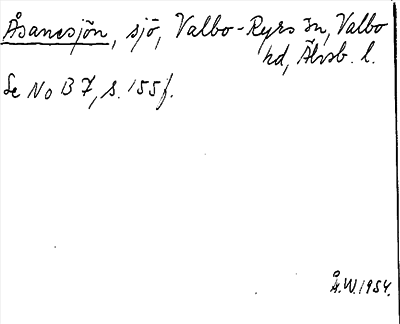 Åsanesjön, sjö, Valbo-Ryrs sn, Valbo
hd, Älvsb. l.
Se No B 7, s. 155 f.
Å.W. 1954.